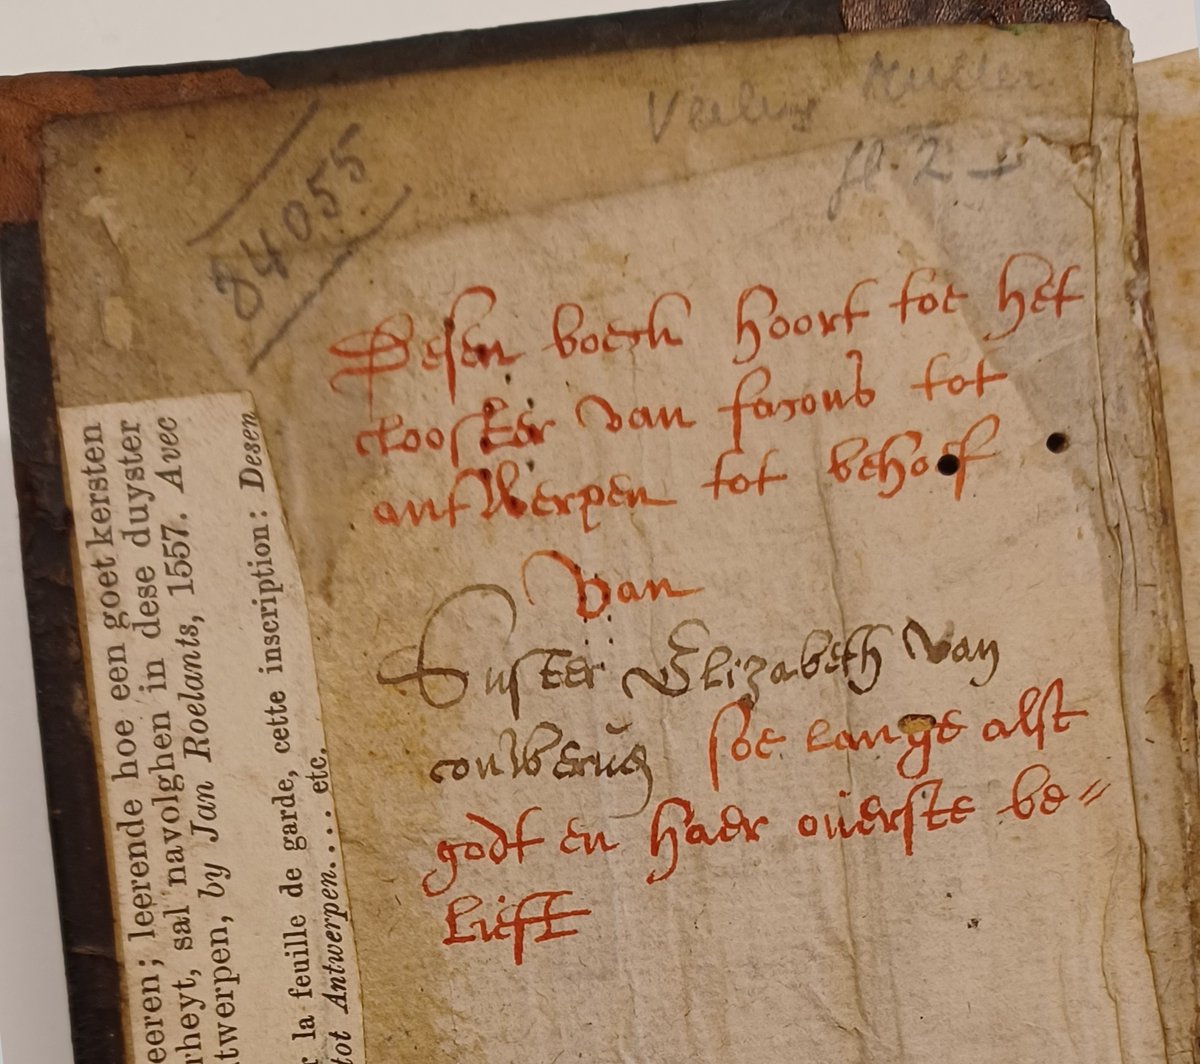 Veiling Muller
fl. 2
84055
Desen boeck hoort toe het
clooster van facons tot
antwerpen tot behoef
van
Suster Elizabeth van
soe lange alst
godt en haer ouerste be=
lieft
eeren; leerende hoe een goet kersten
rheyt, sal navolghen in dese duyster
twerpen, by Jan Roelants, 1557. Avec
r la feuille de garde, cette inscription: Desen
tot Antwerpen.... etc.